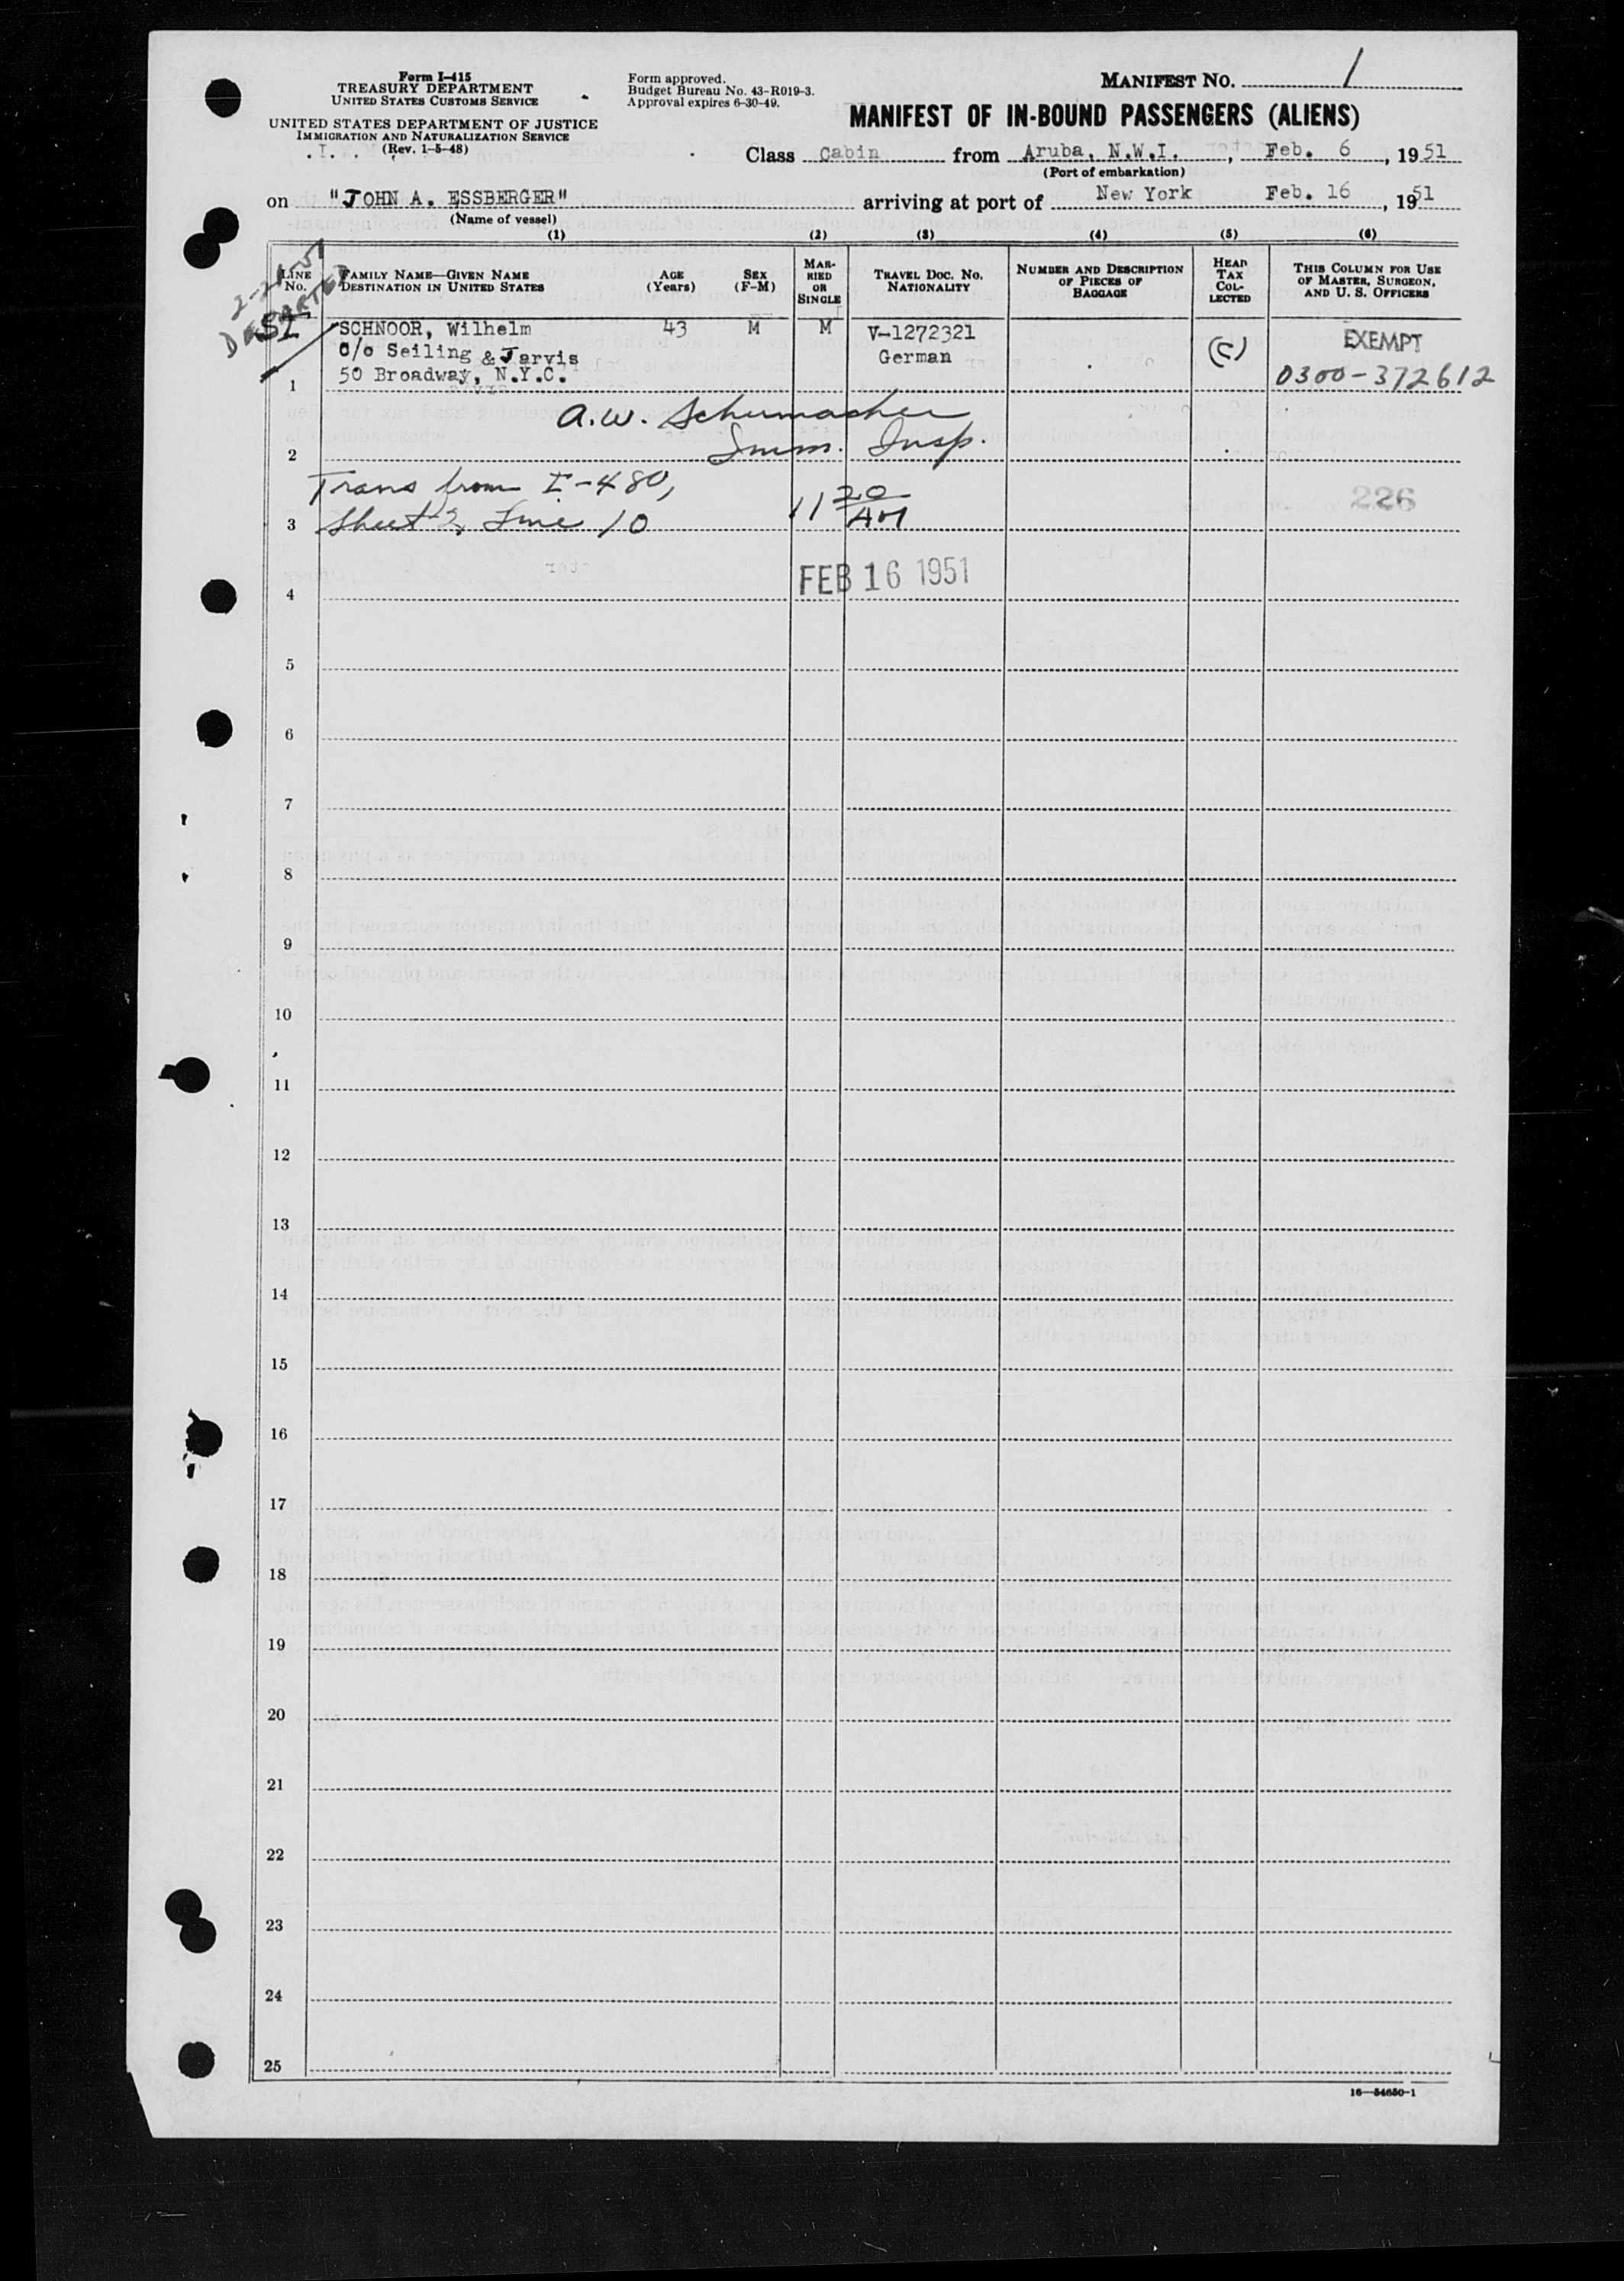 Form I-415
TREASURY DEPARTMENT
UNITED STATES CUSTOMS SERVICE
UNITED STATES DEPARTMENT OF JUSTICE
IMMIGRATION AND NATURALIZATION SERVICE
(Rev. 1-5-48)
Form approved.
Budget Bureau No. 43-R019-3.
Approval expires 6-30-49.
MANIFEST NO. 1
MANIFEST OF IN-BOUND PASSENGERS (ALIENS)
Class Cabin from Aruba, N.W.I., Feb. 6, 1951
(Port of embarkation)
on "JOHN A. ESSBERGER" arriving at port of New York Feb. 16, 1951
(Name of vessel)
(1) (2) (3) (4) (5) (6)
LINE No.
FAMILY NAME—GIVEN NAME
DESTINATION IN UNITED STATES
AGE (Years)
SEX (F-M)
MARRIED OR SINGLE
TRAVEL DOC. NO.
NATIONALITY
NUMBER AND DESCRIPTION OF PIECES OF BAGGAGE
HEAD TAX COLLECTED
THIS COLUMN FOR USE OF MASTER, SURGEON, AND U. S. OFFICERS
DEPARTED
SCHNOOR, Wilhelm 43 M M V-1272321 EXEMPT
c/o Seiling & Jarvis German (c)
1 50 Broadway, N.Y.C. 0300-372612
A.W. Schumacher
2 Imm. Insp.
Trans from I-480, 226
3 Sheet 2, Line 10 11 20/AM
4 FEB 16 1951
5
6
7
8
9
10
11
12
13
14
15
16
17
18
19
20
21
22
23
24
25
16—54650-1